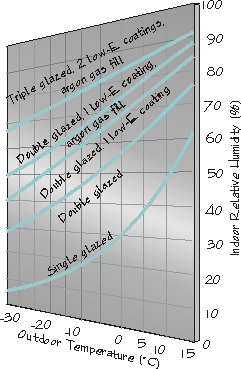 100
90
80
70
60
50
40
30
20
10
0
Indoor Relative Humidity (%)
Triple glazed, 2 low-E coatings,
argon gas fill
Double glazed, 1 low-E coating,
argon gas fill
Double glazed, 1 low-E coating
Double glazed
Single glazed
-30 -20 -10 0 5 10 15
Outdoor Temperature (°C)